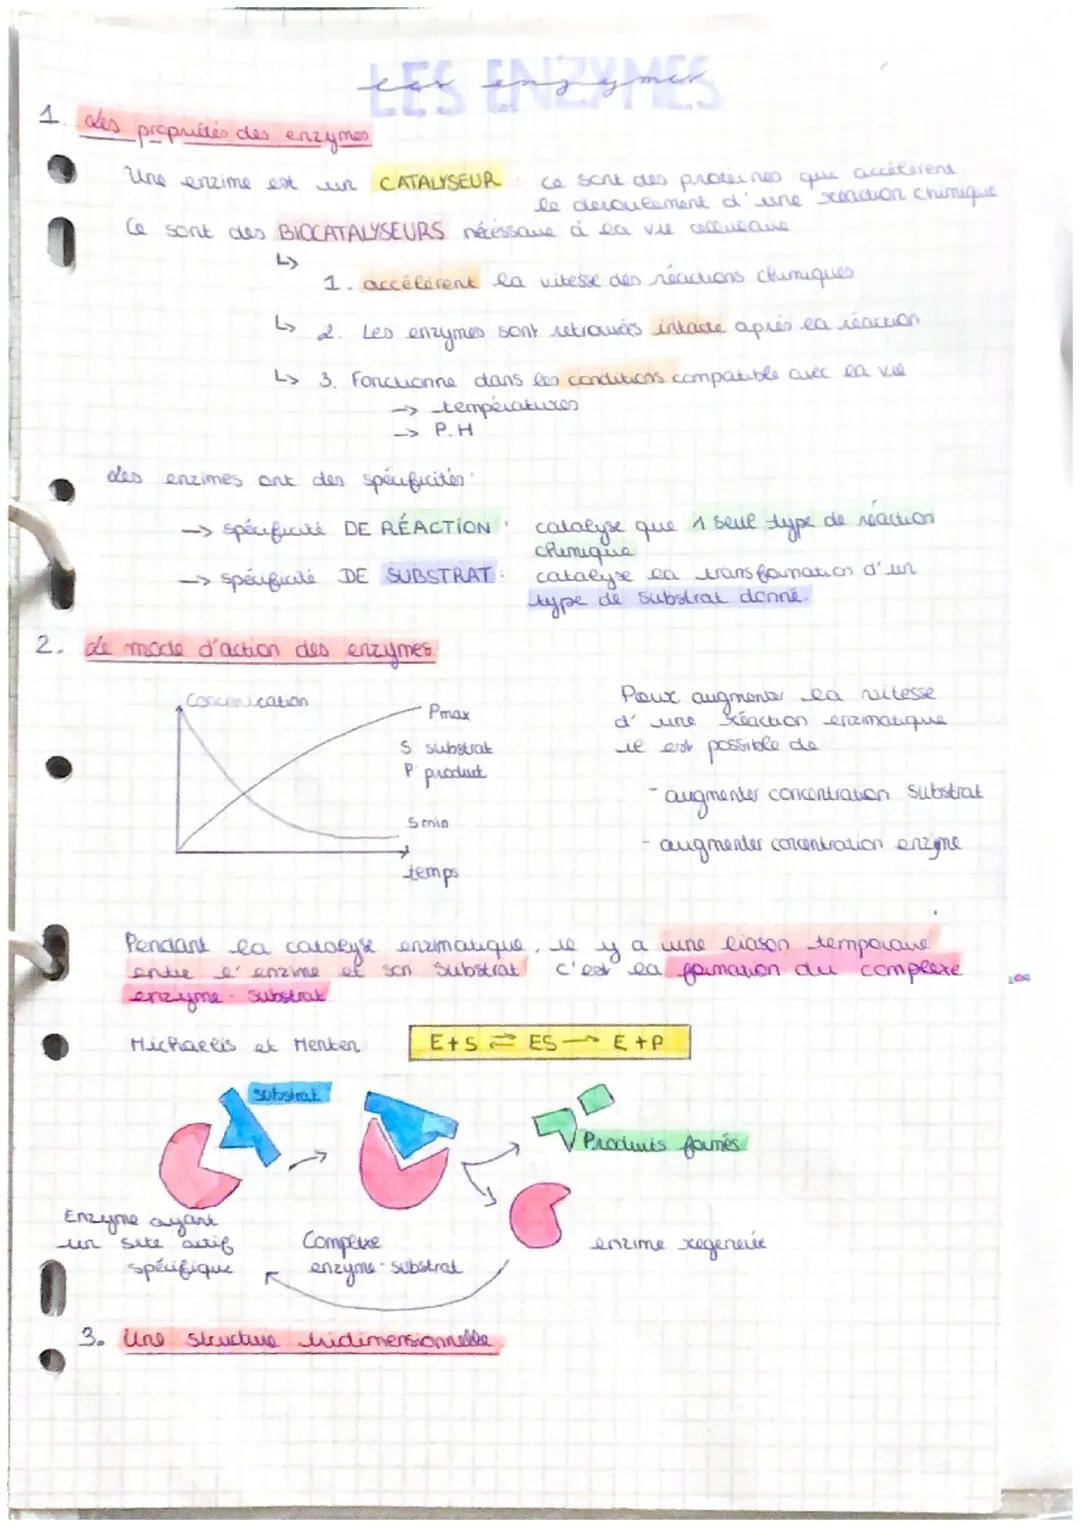 LES ENZYMES
les enzymes
1. Les propriétés des enzymes
Une enzime est un CATALYSEUR : ce sont des protéines qui accélèrent
le deroulement d'une réaction chimique
Ce sont des BIOCATALYSEURS nécéssaire à la vie cellulaire
↳
1. accélèrent la vitesse des réactions chimiques
↳ 2. Les enzymes sont retrouvées intacte après la réaction
↳ 3. Fonctionne dans les conditions compatible avec la vie
→ températures
→ P.H
Les enzimes ont des spécificités :
→ spécificité DE RÉACTION : catalyse que 1 seul type de réaction
chimique
→ spécificité DE SUBSTRAT : catalyse la transformation d'un
type de substrat donné.
2. Le mode d'action des enzymes
Concentration
Pmax
S substrat
P produit
S min
temps
Pour augmenter la vitesse
d'une réaction enzimatique
il est possible de
- augmenter concentration substrat
- augmenter concentration enzyme
Pendant la catalyse enzimatique, il y a une liason temporaire
entre l'enzime et son substrat c'est la formation du complexe
enzyme - substrat
Michaelis et Menten
E+S ⇌ ES → E+P
substrat
Produits formés
Enzyme ayant
un site actif
spécifique
Complexe
enzyme - substrat
enzime regenerée
3. Une structure tridimensionnelle